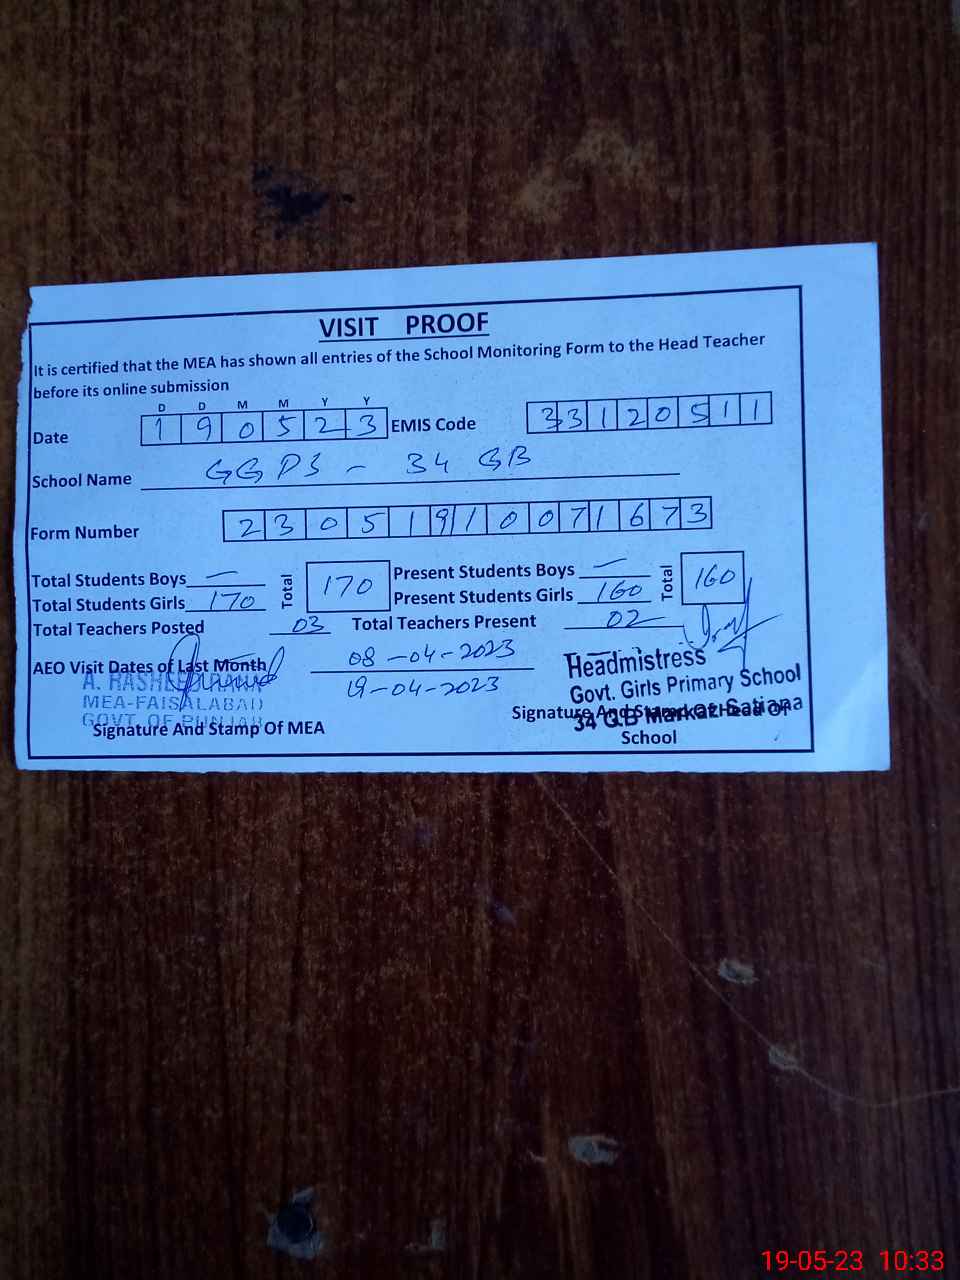 VISIT PROOF
It is certified that the MEA has shown all entries of the School Monitoring Form to the Head Teacher
before its online submission
D D M M Y Y
Date 1 9 0 5 2 3 EMIS Code 3 3 1 2 0 5 1 1
School Name GGPS - 34 GB
Form Number 2 3 0 5 1 9 1 0 0 7 1 6 7 3
Total Students Boys — Total 170 Present Students Boys — Total 160
Total Students Girls 170 Present Students Girls 160
Total Teachers Posted 03 Total Teachers Present 02
AEO Visit Dates of Last Month 08-04-2023
19-04-2023
A. RASHEED
MEA-FAISALABAD
GOVT. OF PUNJAB
Signature And Stamp Of MEA
Headmistress
Govt. Girls Primary School
34 G.B Markaz Satiana
Signature And Stamp Of Head Of
School
19-05-23 10:33